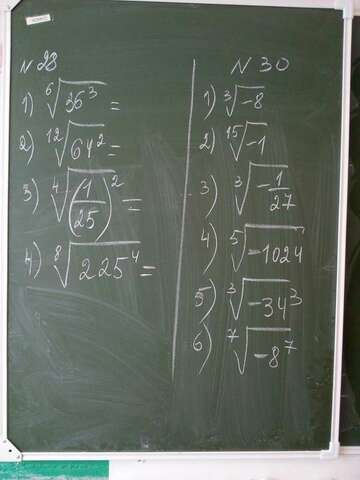 N 28
1) ⁶√36³ =
2) ¹²√64² =
3) ⁴√(1/25)² =
4) ⁸√225⁴ =
N 30
1) ³√-8
2) ¹⁵√-1
3) ³√-1/27
4) ⁵√-1024
5) ³√-34³
6) ⁷√-8⁷